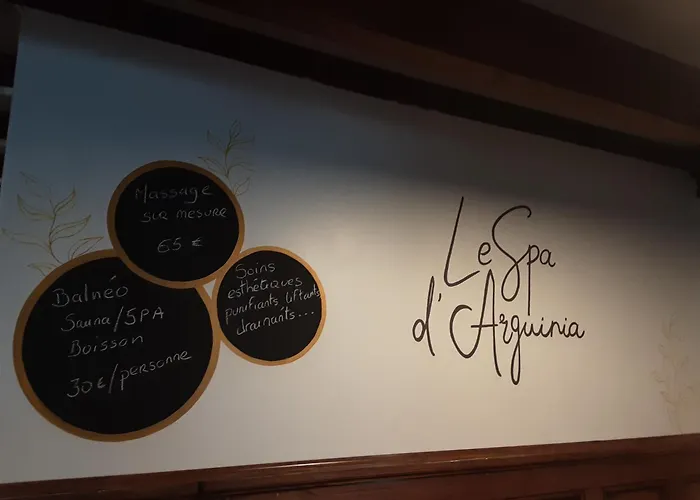 Massage
sur mesure
65 €
Balnéo
Sauna/SPA
Boisson
30€/personne
Soins
esthétiques
purifiants liftants
drainants...
Le Spa
d'Arguinia